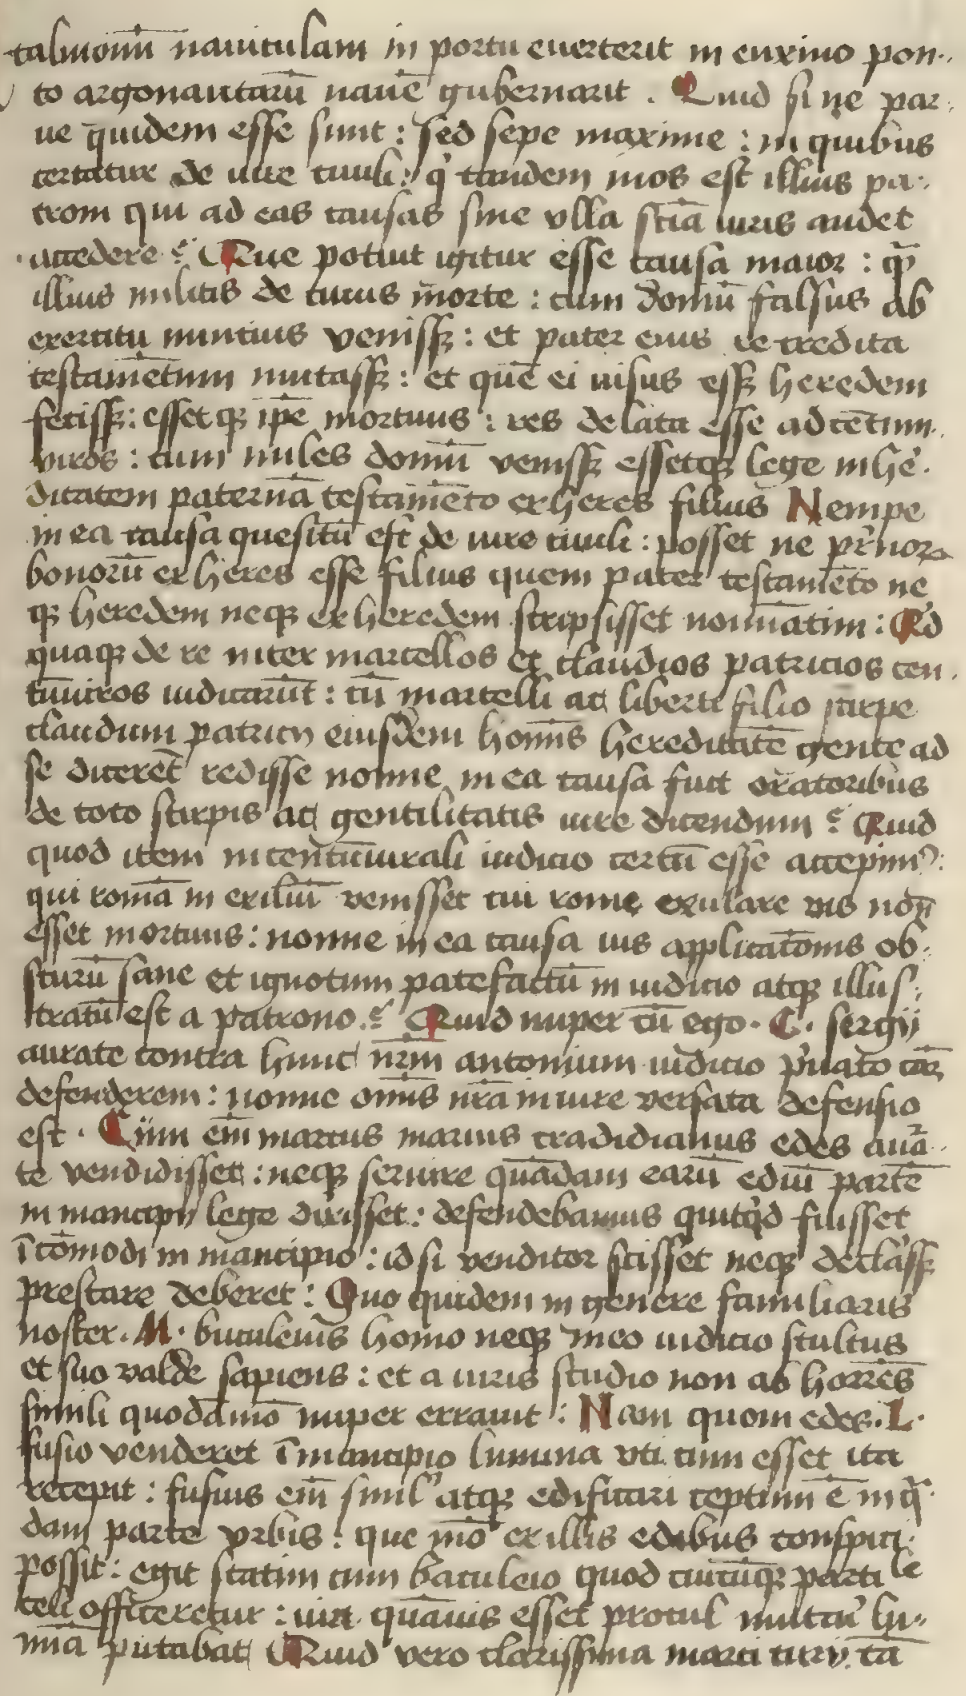 talmonū nauiculam in portu euerterit in euxino pon-
to argonautarū nauē gubernarit. Quid si ne par-
ue quidem esse sunt: sed sepe maxime: in quibus
certatur de iure ciuili: q̇ tandem mos est illius pa-
trom qui ad eas causas sine vlla sciā iuris audet
accedere? Que potuit igitur esse causa maior: q̄
illius militis de cuius morte: cum domū falsus ab
exercitu nuntius venissꝫ: et pater eius re credita
testamētum mutassꝫ: et quē ei uisus essꝫ heredem
fecissꝫ: essetqꝫ ipē mortuus: res delata esse ad cētum
uiros: cum miles domū venissꝫ essetqꝫ lege in he-
ditatem paternā testamēto exheres filius Nempe
in ea causa quesitū est de iure ciuili: posset ne pr̄norꝝ
bonorū exheres esse filius quem pater testamēto ne
qꝫ heredem neqꝫ exheredem scripsisset nominatim: Qd
quaqꝫ de re inter marcellos et claudios patricios cen-
tūuiros iudicarūt: cū marcelli ac liberti filio stirpe
claudium patricij eiusdem hoīns hereditatē gente ad
se dicerēt redisse nonne in ea causa fuit oratoribus
de toto stirpis ac gentilitatis iure dicendum? Quid
quod item in centūuirali iudicio certū esse accepimꝰ:
qui romā in exiliū venisset cui rome exulare ius nō
esset mortuus: nonne in ea causa ius applicatōnis ob-
scurū sane et ignotum patefactū in iudicio atqꝫ illus-
tratū est a patrono? Quid nuper cū ego. C. sergij
aurate contra hunc nr̄m antonium iudicio pͥuato cāꝫ
defenderem: nonne omīs nr̄a in iure versata defensio
est. Cum em̄ marcus marius tradidianus edes aura-
te vendidisset: neqꝫ seruire quādam earū ediū partē
in mancipij lege dixisset: defendebamus quitqͥd fuisset
ī cōmodi in mancipio: id si venditor scisset neqꝫ declāssꝫ
prestare deberet: Quo quidem in genere familiaris
noster. M. buculeius homo neqꝫ meo iudicio stultus
et suo valde sapiens: et a iuris studio non ab horrēs
simili quodāmō nuper errauit: Nam quom edes. L.
fusio venderet ī mancipio lumina vti cum esset ita
recepit: fusius em̄ simul atqꝫ edificari ceptum ē in q̄-
dam parte vrbis: que mō ex illis edibus conspici
possit: egit statim cum baculeio quod cuicūqꝫ parti le
celi officeretur: uiꝛ quāuis esset procul mutari lu-
mīa putabat Quid vero clarissima marci curij cā